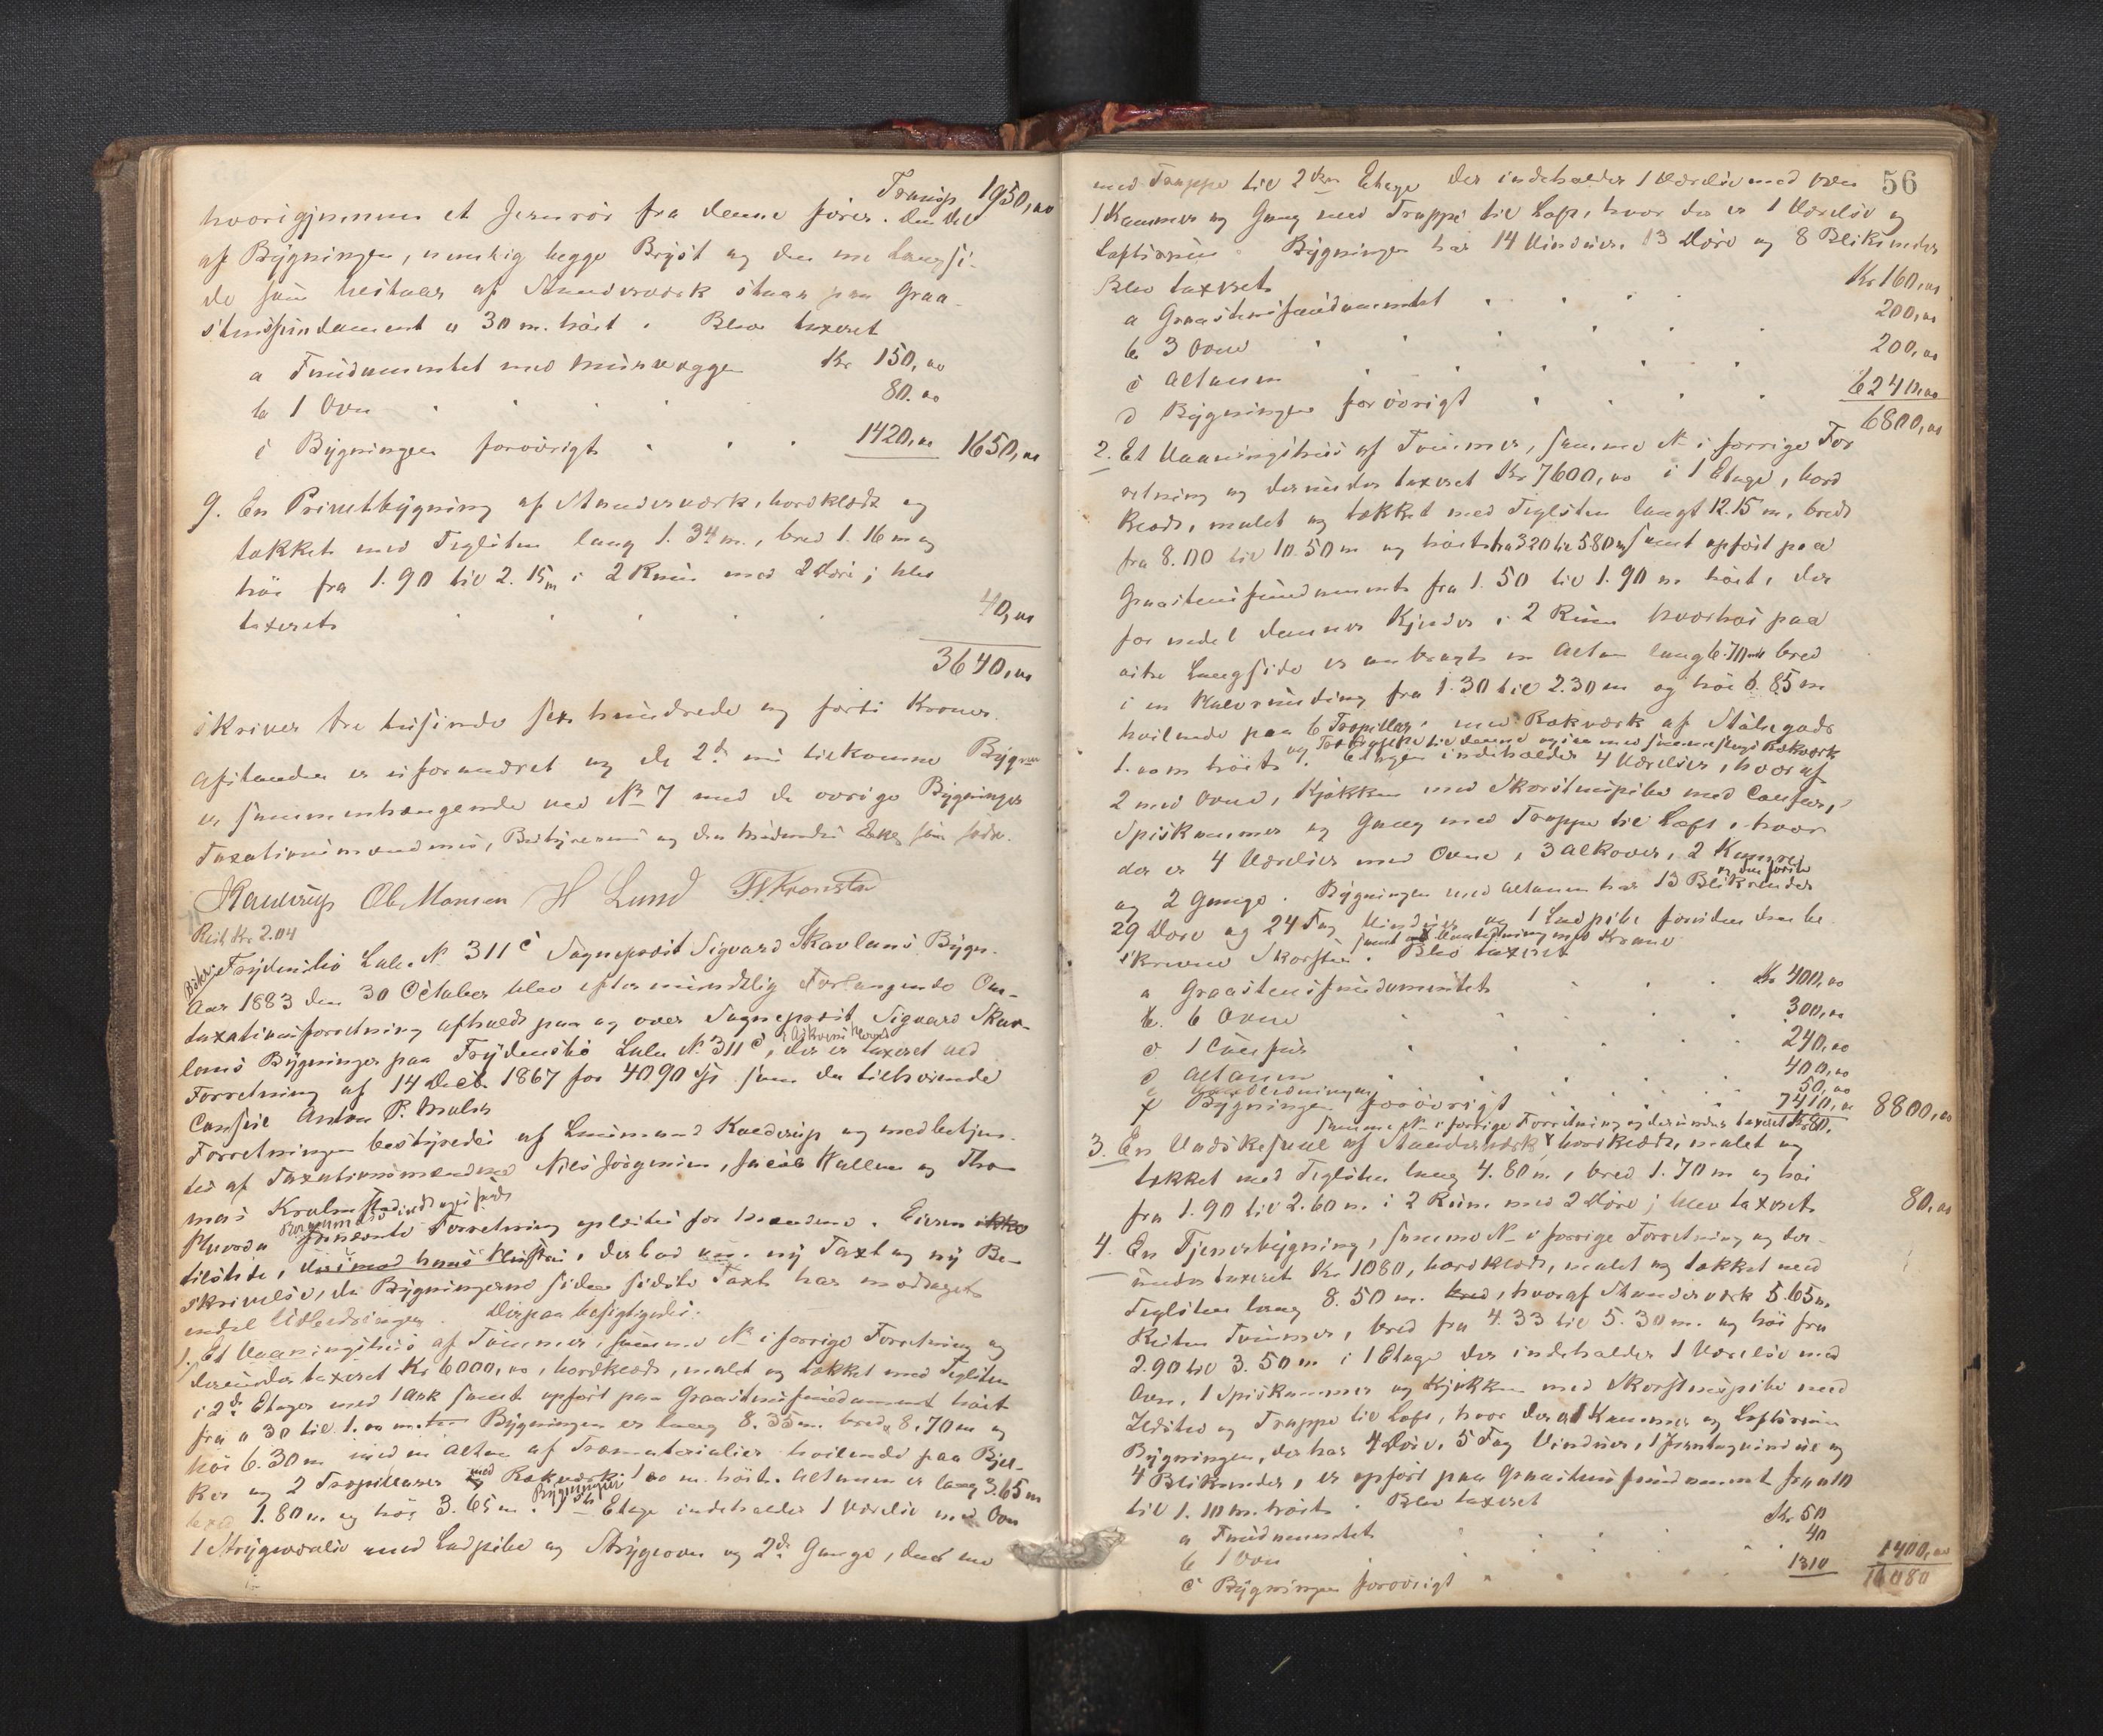 Transp. 1950,00
hvorigjennem et Jernrør fra denne fører. Den Del
af Bygningen, nemlig begge Bryst og den ene Langsi-
de som bestaar af Stenderværk staar paa Graa-
stensfundament a 30 m. høit. Blev taxeret
a Fundamentet med Muurvægge Kr 150,00
b 1 Ovn 80.00
c Bygningen forøvrigt 1420,00 1650,00
9. En Privetbygning af Stenderværk, bordklædt og
tækket med Teglsten lang 1.34 m., bred 1.16 m og
høi fra 1.90 til 2.15 m i 2 Rum med 2 Døre; blev
taxeret 40,00
3640,00
skriver tre tusinde sex hundrede og forti Kroner.
Afstanden er uforandret og de 2de nu tilkomne Bygn
er sammenhængende ved No 7 med de øvrige Bygninger
Taxationsmændenes, Bestyrerens og den
Kaldrup Ole Monsen H Lund F. Kronstad
Reist Kr. 2.04
Frydenbø Lab. No 311 c Sogneprest Sigvard Skavlans Bygn.
Aar 1883 den 30 October blev efter mundtlig Forlangende Om-
taxationsforretning afholdt paa og over Sogneprest Sigvard Skav-
lans Bygninger paa Frydenbø Labr No 311 c, i Askvens Herred der er taxeret ved
Forretning af 14 Decb. 1867 for 4090 Spd som da tilhørende
Consul Anton P. Mohr
Forretningen bestyredes af Lensmand Kaldrup og medbetjen-
tes af Taxationsmændene Nils Jørgensen, Jacob Kallem og Tho-
mas Kralmstad
Pluvoda Forretning oplæstes for Mændene. Eieren ikke
tilstede, der bad om ny Taxt og ny Be-
skrivelse, da Bygningerne siden sidste Taxt har modtaget
endel Udbedringer. Derpaa besigtigedes:
1. Et Vaaningshus af Tømmer, samme No i forrige Forretning og
derunder taxeret Kr 6000,00, bordklædt, malet og tækket med Teglsten
i 2de Etager med 1 Ark samt opført paa Graastensfundament høit
fra 0.30 til 1.00 m. Bygningen er lang 8.35 m. bred 8.70 m og
høi 6.30 m med en Altan af Træmaterialier hvilende paa Bjel-
ker og 2 Træpillarer med Rækværk 1.00 m. høit. Altanen er lang 3.65 m
bred 1.80 m. og høi 3.65 m. Bygningens 1ste Etage indeholder 1 Værelse med Ovn
1 Strygeværelse med Ladpibe og Strygeovn og 2de Gange, den ene
56
med Trappe til 2den Etage der indeholder 1 Værelse med Ovn
1 Kammer og Gang med Trappe til Loft, hvor der er 1 Værelse og
Loftsrum. Bygningen har 14 Vinduer, 13 Døre og 8 Blikrender
Blev taxeret
a Graastensfundamentet Kr 160,00
b 3 Ovne 200,00
c Altanen 200,00
d Bygningen forøvrigt 6240,00
6800,00
2. Et Vaaningshus af Tømmer, samme No i forrige For-
retning og derunder taxeret Kr 7600,00 i 1 Etage, bord-
klædt, malet og tækket med Teglsten langt 12.15 m. bredt
fra 8.00 til 10.50 m og høit fra 3.20 til 5.80 m samt opført paa
Graastensfundament fra 1.50 til 1.90 m høit, der
for endel danner Kjelder i 2 Rum hvorhos paa
østre Langside er anbragt en Altan lang 6.70 m bred
i en Halvrunding fra 1.30 til 2.30 m og høi 6.85 m
hvilende paa 6 Træpillar, med Rækværk af Støbegods
og Trætrappe til denne ogsaa med samme slags Rækværk
1.00 m høit. Etagen indeholder 4 Værelser, hvoraf
2 med Ovne, Kjøkken med Skorstenspibe med Comfur,
Spiskammer og Gang med Trappe til Loft, hvor
der er 4 Værelser med Ovne, 3 Alkover, 2 Kamre
og 2 Gange. Bygningen med Altanen har 13 Blikrender
29 Døre og 24 Fag Vinduer og 1 Ladpibe foruden den be-
skrevne Skorsten. samt Vandledning med Krane Blev taxeret
a Graastensfundamentet Kr 400,00
b. 6 Ovne 300,00
c 1 Comfur 240,00
d Altanen 400,00
e Vandledningen 50,00
f Bygningen forøvrigt 7410,00 8800,00
samme No i forrige Forretning og derunder taxeret Kr 80.
3. En Vadskeskuul af Stenderværk, bordklædt, malet og
tækket med Teglsten lang 4.80 m, bred 1.70 m og høi
fra 1.90 til 2.60 m. i 2 Rum med 2 Døre; blev taxeret 80,00
4. En Tjenerbygning, samme No i forrige Forretning og der-
under taxeret Kr 1080, bordklædt, malet og tækket med
Teglsten lang 8.50 m. bred, hvoraf Stenderværk 5.65 m.
Resten Tømmer, bred fra 4.33 til 5.30 m. og høi fra
2.90 til 3.50 m i 1 Etage der indeholder 1 Værelse med
Ovn, 1 Spiskammer og Kjøkken med Skorstenspibe med
Ildsted og Trappe til Loft, hvor der er 1 Kammer og Loftsrum
Bygningen, der har 4 Døre, 5 Fag Vinduer, 1 Jerntagvindue og
4 Blikrender, er opført paa Graastensfundament fra 0.10
til 1.10 m. høit. Blev taxeret
a Fundamentet Kr 50
b 1 Ovn 40
c Bygningen forøvrigt 1310 1400,00
17080